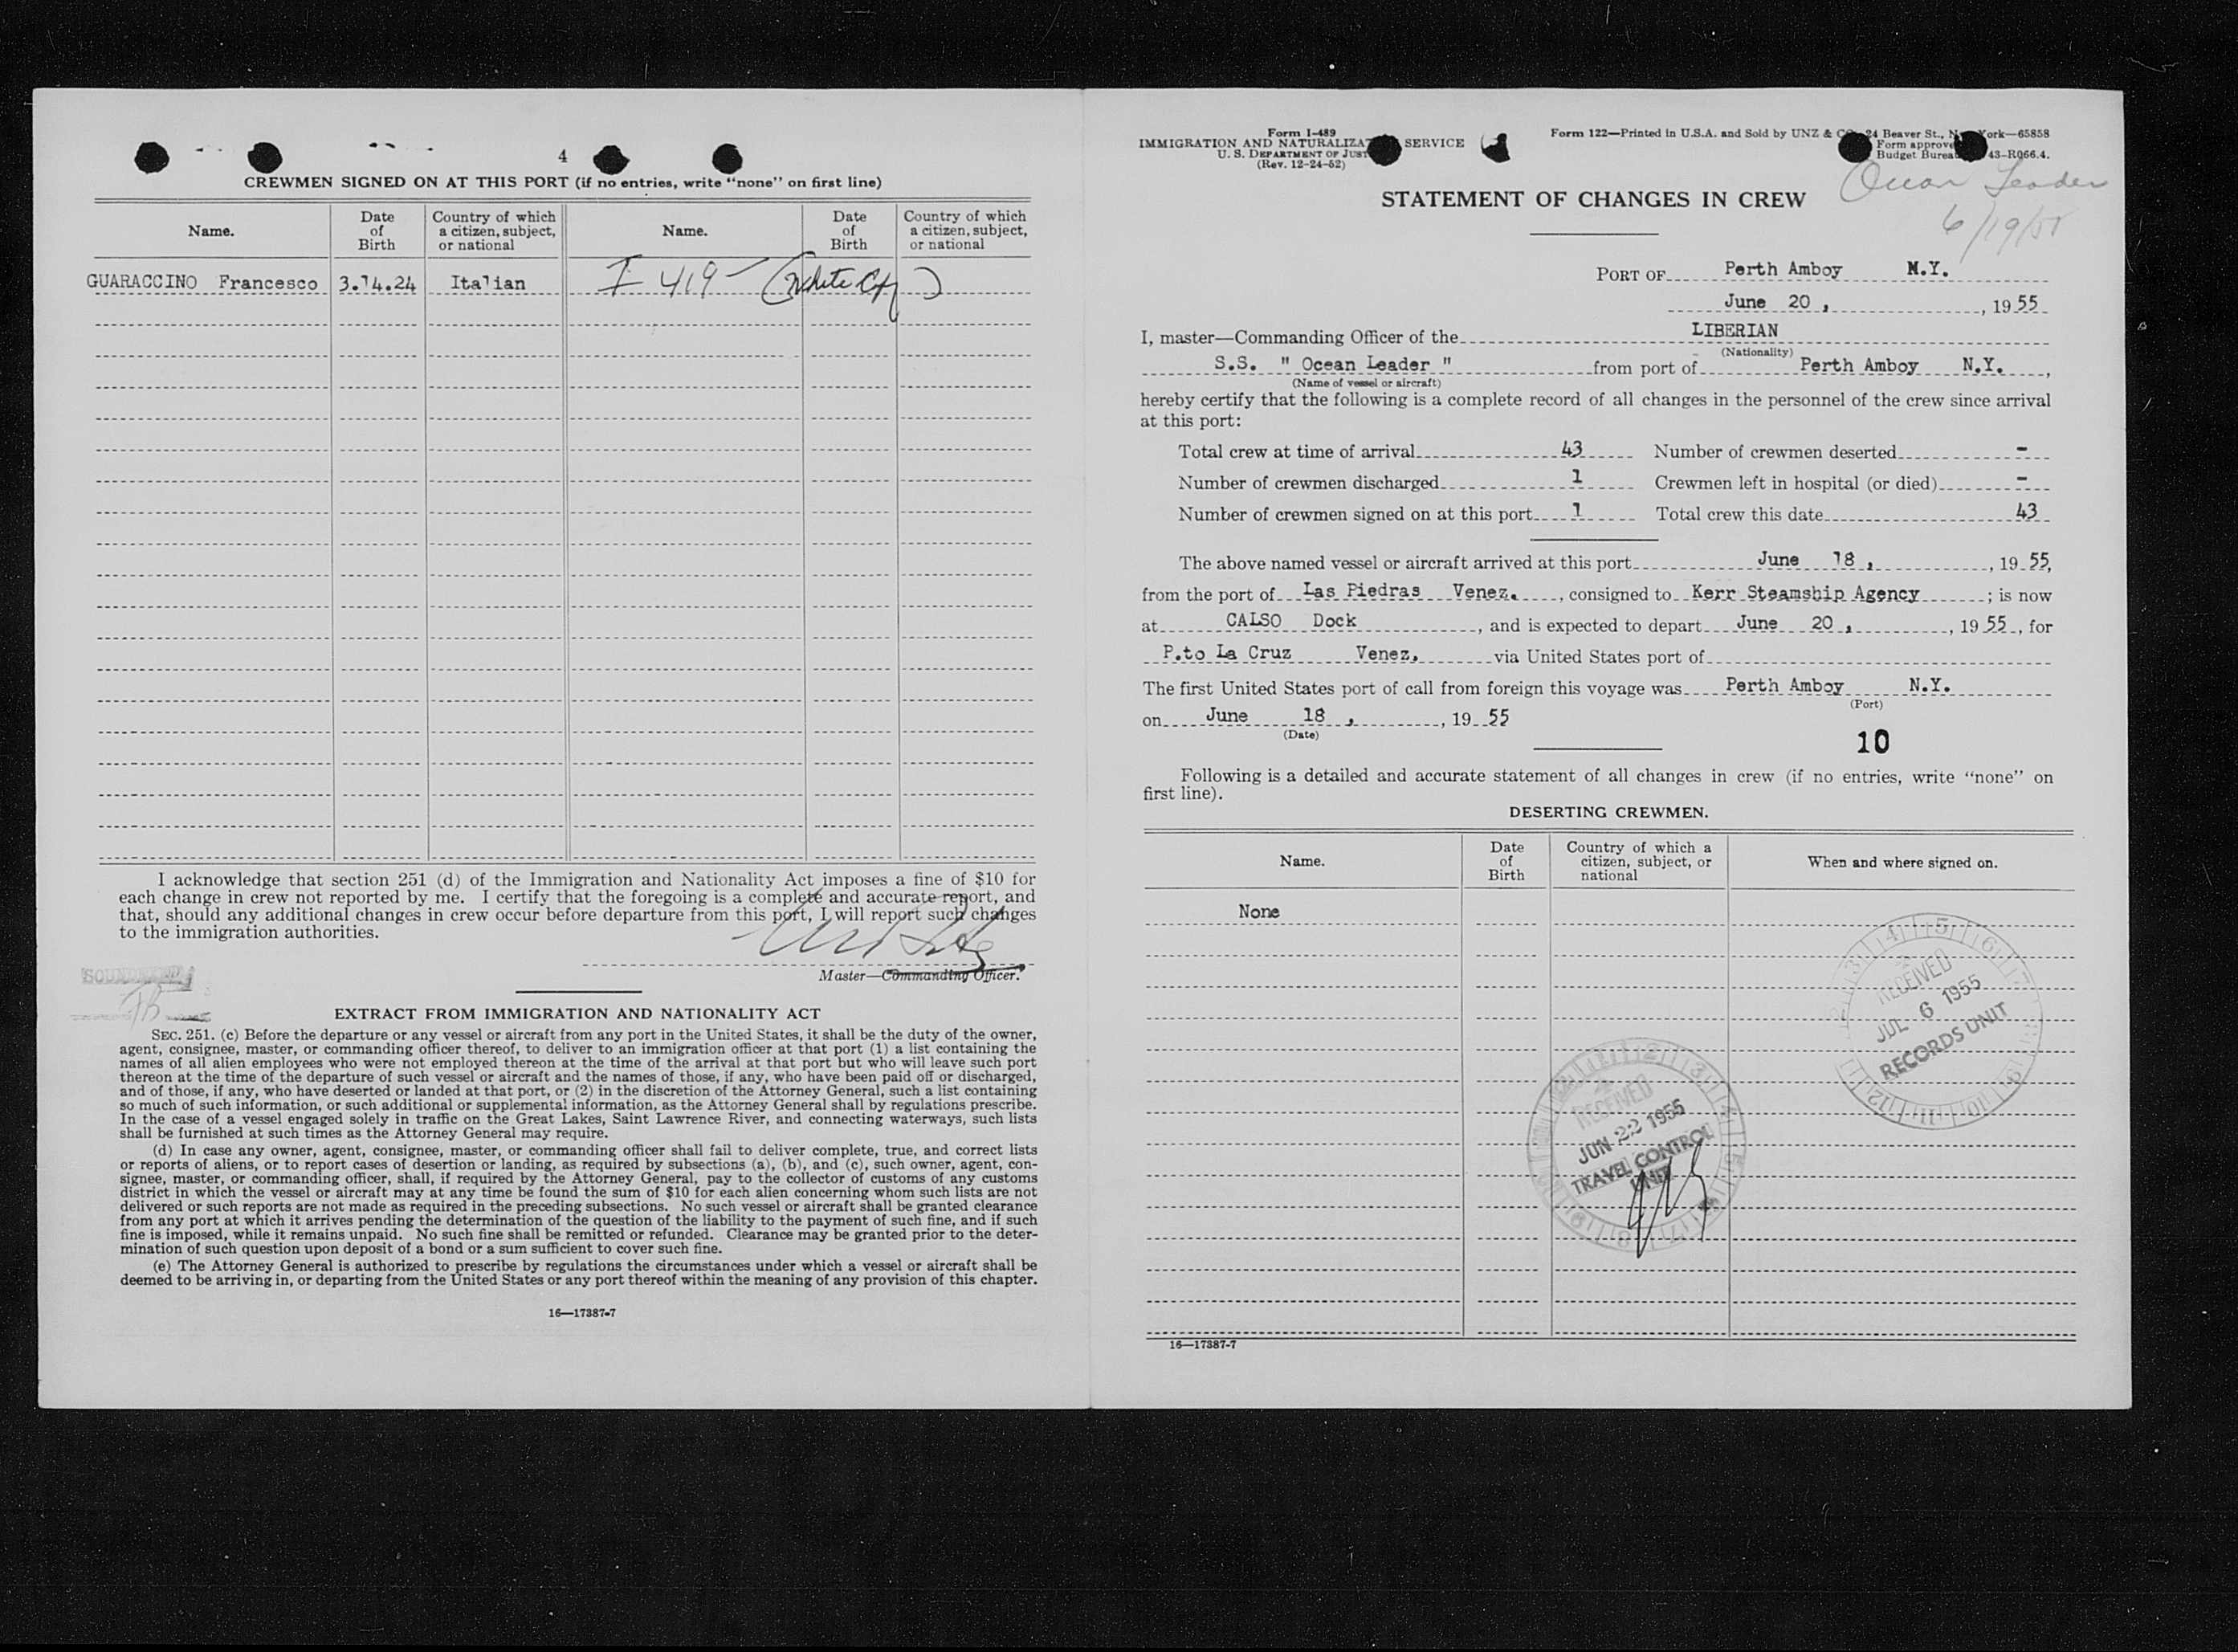 4
CREWMEN SIGNED ON AT THIS PORT (if no entries, write “none” on first line)
Name. Date of Birth Country of which a citizen, subject, or national Name. Date of Birth Country of which a citizen, subject, or national
GUARACCINO Francesco 3.14.24 Italian I 419 - (White Cpy)
I acknowledge that section 251 (d) of the Immigration and Nationality Act imposes a fine of $10 for
each change in crew not reported by me. I certify that the foregoing is a complete and accurate report, and
that, should any additional changes in crew occur before departure from this port, I will report such changes
to the immigration authorities.
Master—Commanding Officer.
EXTRACT FROM IMMIGRATION AND NATIONALITY ACT
SEC. 251. (c) Before the departure or any vessel or aircraft from any port in the United States, it shall be the duty of the owner,
agent, consignee, master, or commanding officer thereof, to deliver to an immigration officer at that port (1) a list containing the
names of all alien employees who were not employed thereon at the time of the arrival at that port but who will leave such port
thereon at the time of the departure of such vessel or aircraft and the names of those, if any, who have been paid off or discharged,
and of those, if any, who have deserted or landed at that port, or (2) in the discretion of the Attorney General, such a list containing
so much of such information, or such additional or supplemental information, as the Attorney General shall by regulations prescribe.
In the case of a vessel engaged solely in traffic on the Great Lakes, Saint Lawrence River, and connecting waterways, such lists
shall be furnished at such times as the Attorney General may require.
(d) In case any owner, agent, consignee, master, or commanding officer shall fail to deliver complete, true, and correct lists
or reports of aliens, or to report cases of desertion or landing, as required by subsections (a), (b), and (c), such owner, agent, con-
signee, master, or commanding officer, shall, if required by the Attorney General, pay to the collector of customs of any customs
district in which the vessel or aircraft may at any time be found the sum of $10 for each alien concerning whom such lists are not
delivered or such reports are not made as required in the preceding subsections. No such vessel or aircraft shall be granted clearance
from any port at which it arrives pending the determination of the question of the liability to the payment of such fine, and if such
fine is imposed, while it remains unpaid. No such fine shall be remitted or refunded. Clearance may be granted prior to the deter-
mination of such question upon deposit of a bond or a sum sufficient to cover such fine.
(e) The Attorney General is authorized to prescribe by regulations the circumstances under which a vessel or aircraft shall be
deemed to be arriving in, or departing from the United States or any port thereof within the meaning of any provision of this chapter.
16—17387-7
Form I-489
IMMIGRATION AND SERVICE
U. S. DEPARTMENT OF
(Rev. 12-24-52)
Form 122—Printed in U.S.A. and Sold by UNZ & 24 Beaver St., 65858
Form
Budget 43-R066.4.
Ocean Leader
6/19/55
STATEMENT OF CHANGES IN CREW
PORT OF Perth Amboy N.Y.
June 20 , , 19 55
I, master—Commanding Officer of the LIBERIAN
(Nationality)
S.S. " Ocean Leader " from port of Perth Amboy N.Y. ,
(Name of vessel or aircraft)
hereby certify that the following is a complete record of all changes in the personnel of the crew since arrival
at this port:
Total crew at time of arrival 43 Number of crewmen deserted -
Number of crewmen discharged 1 Crewmen left in hospital (or died) -
Number of crewmen signed on at this port 1 Total crew this date 43
The above named vessel or aircraft arrived at this port June 18 , , 19 55,
from the port of Las Piedras Venez. , consigned to Kerr Steamship Agency ; is now
at CALSO Dock , and is expected to depart June 20 , , 19 55 , for
P.to La Cruz Venez. via United States port of
The first United States port of call from foreign this voyage was Perth Amboy N.Y.
(Port)
on June 18 , , 19 55
(Date)
10
Following is a detailed and accurate statement of all changes in crew (if no entries, write “none” on
first line).
DESERTING CREWMEN.
Name. Date of Birth Country of which a citizen, subject, or national When and where signed on.
None
RECEIVED
JUL 6 1955
RECORDS UNIT
RECEIVED
JUN 22 1955
TRAVEL CONTROL
UNIT
16—17387-7